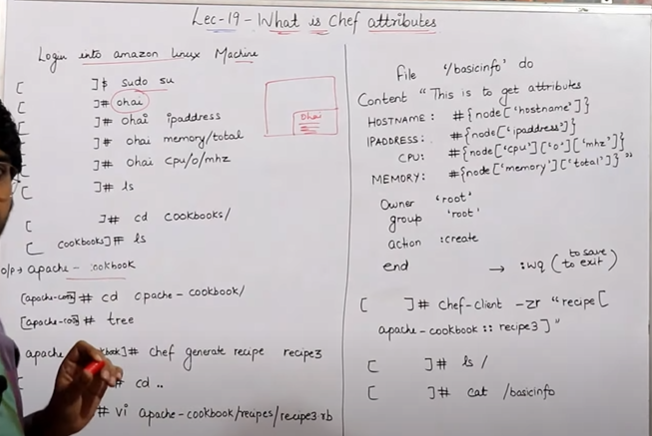 Lec-19 - What is Chef attributes
Login into amazon linux Machine
[ ]$ sudo su
[ ]# ohai
[ ]# ohai ipaddress
[ ]# ohai memory/total
[ ]# ohai cpu/0/mhz
[ ]# ls
[ ]# cd cookbooks/
[ cookbooks]# ls
o/p → apache-cookbook
[apache-cook] # cd apache-cookbook/
[apache-cook] # tree
apache ]# chef generate recipe recipe3
[ # cd ..
# vi apache-cookbook/recipes/recipe3.rb
ohai
file '/basicinfo' do
Content "This is to get attributes
HOSTNAME: #{node['hostname']}
IPADDRESS: #{node['ipaddress']}
CPU: #{node['cpu']['0']['mhz']}
MEMORY: #{node['memory']['total']}"
Owner 'root'
group 'root'
action :create
end → :wq (to save to exit)
[ ]# chef-client -zr "recipe[
apache-cookbook::recipe3]"
[ ]# ls /
[ ]# cat /basicinfo